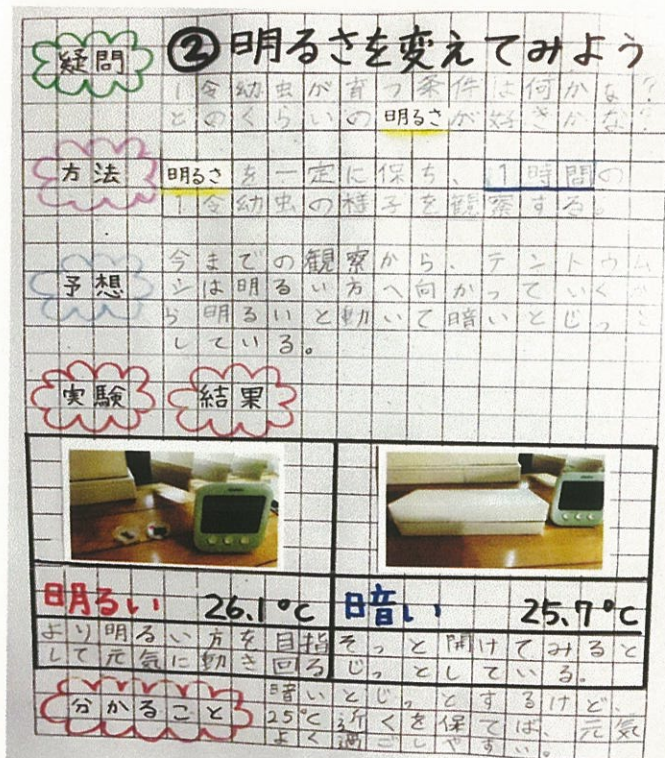 ②明るさを変えてみよう
疑問
1令幼虫が育つ条件は何かな?
どのくらいの明るさが好きかな?
方法
明るさを一定に保ち、1時間の
1令幼虫の様子を観察する。
予想
今までの観察から、テントウム
シは明るい方へ向かっていくか
ら明るいと動いて暗いとじっと
している。
実験 結果
明るい 26.1℃
より明るい方を目指
して元気に動き回る
暗い 25.7℃
そっと開けてみると
じっとしている。
分かること
暗いとじっとするけど、
25℃近くを保てば、元気
よく過ごしやすい。